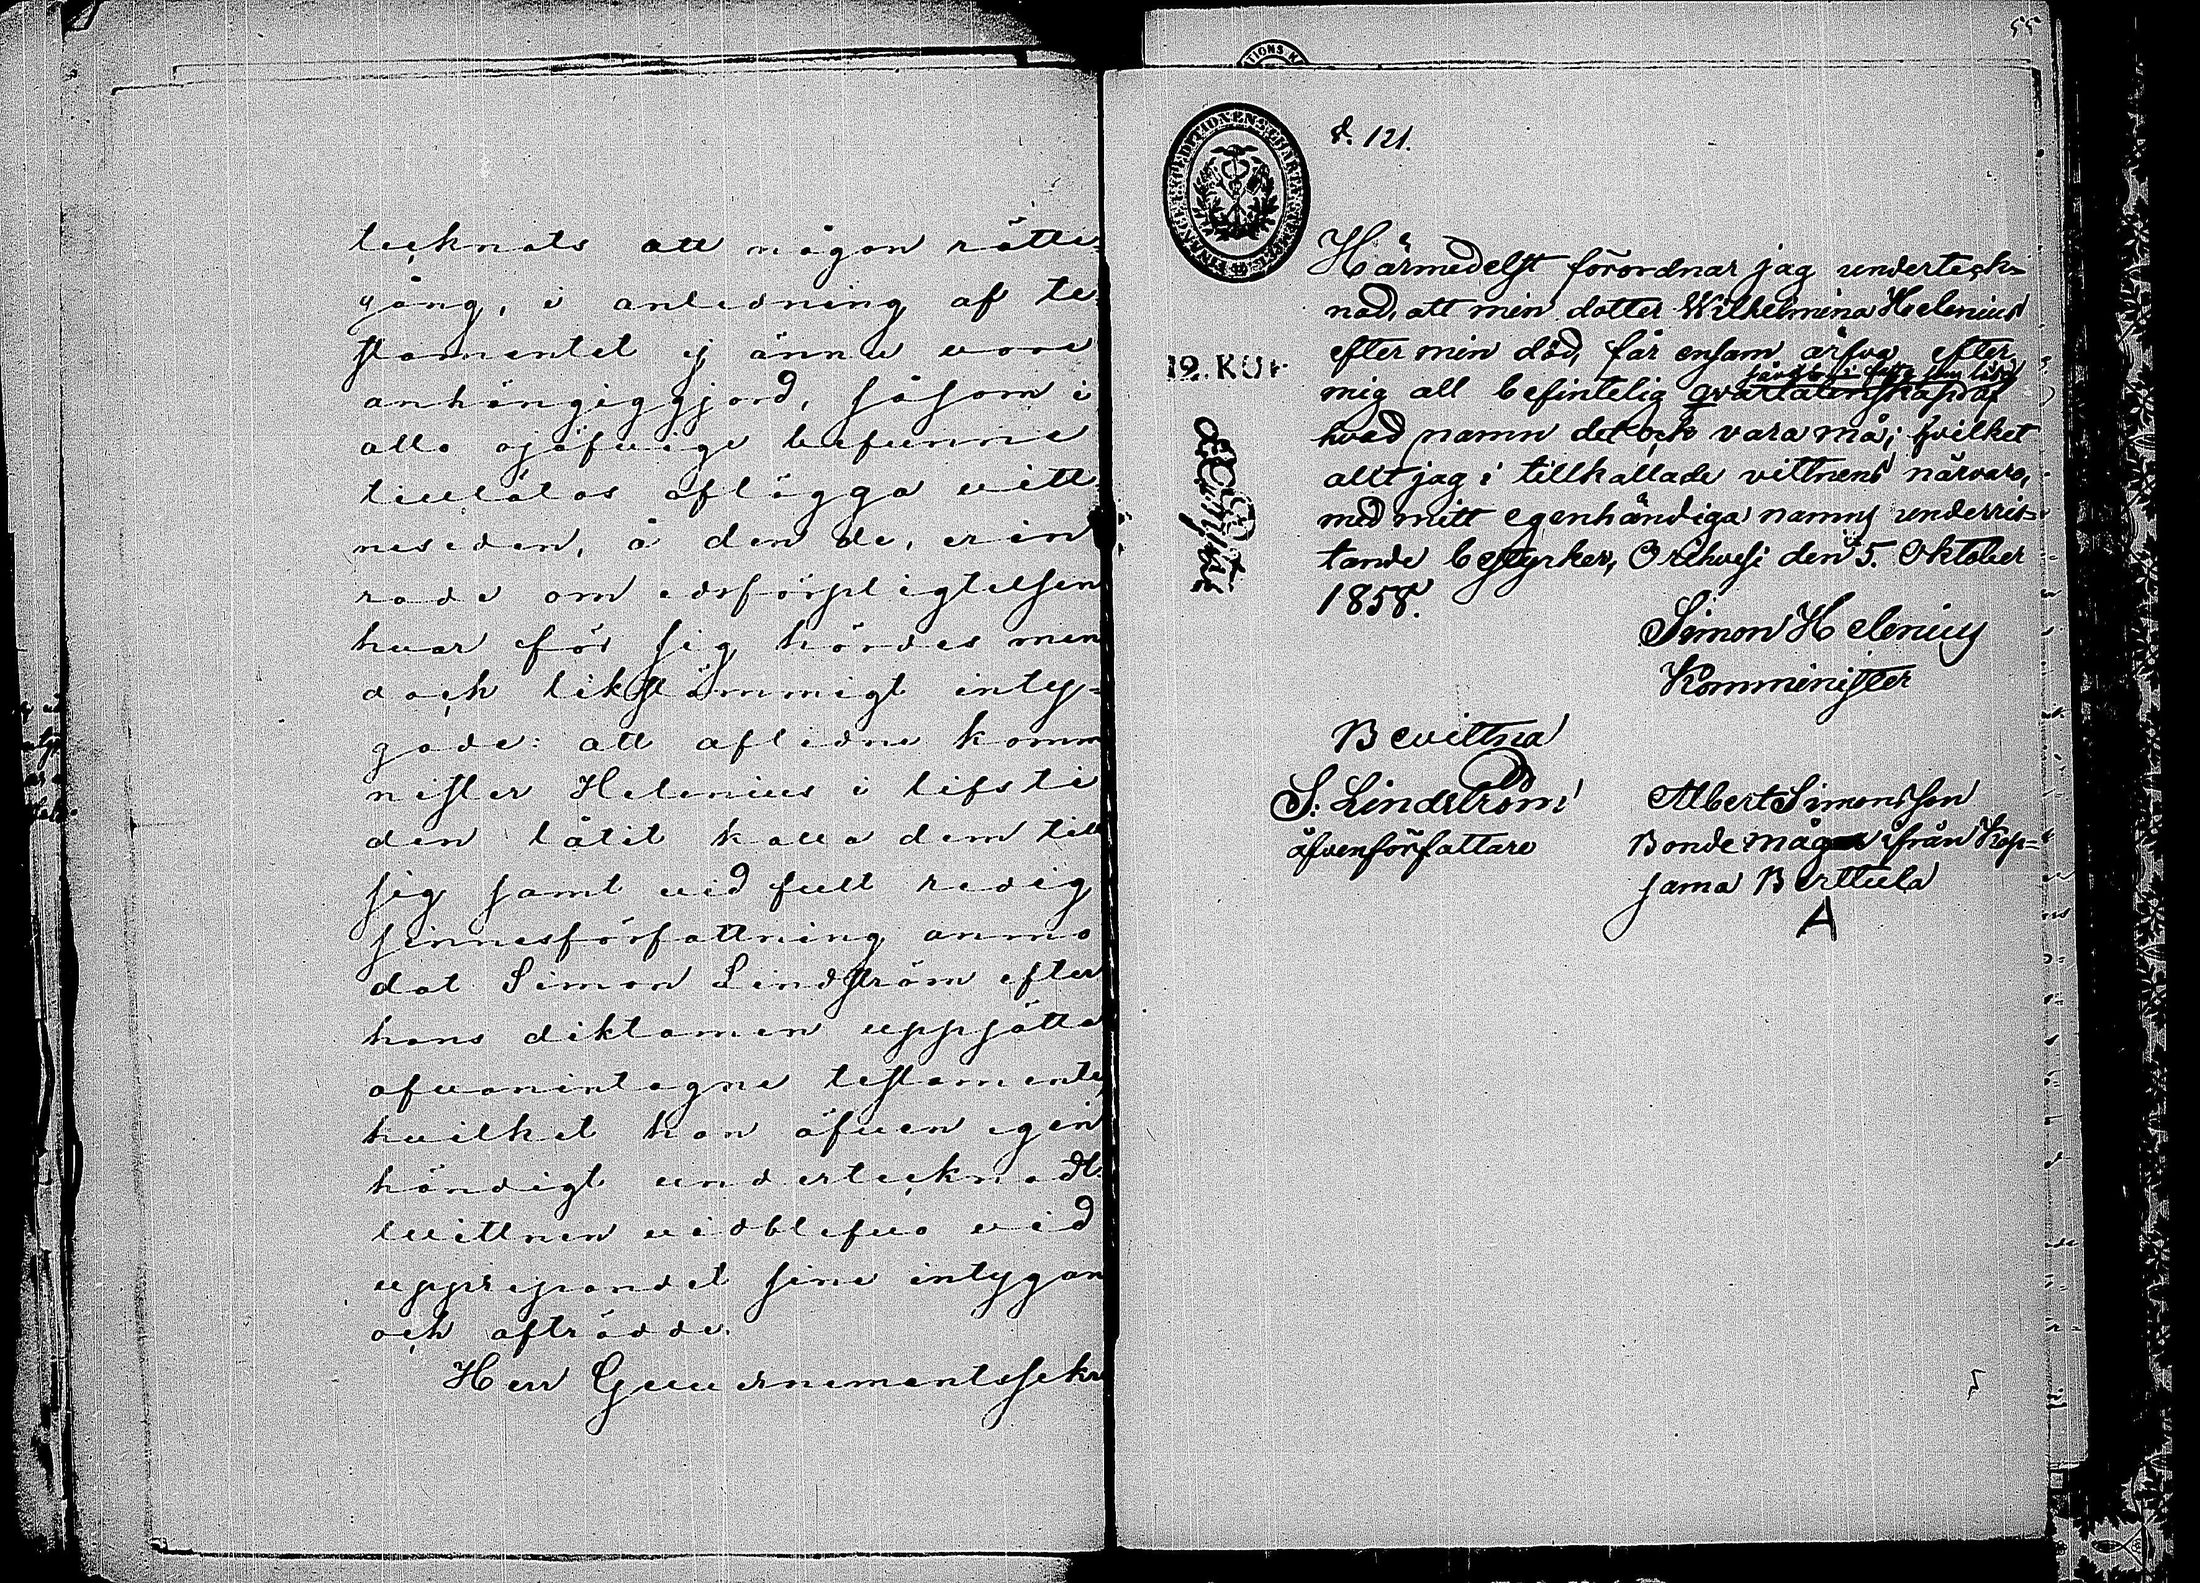 tecknats att någon rätte-
gång, i anledning af te-
stamentet ej ännu vore
anhängiggjord, såsom i
allo ojäfvige befunne
tillätos aflägga vitt
neseden, å den de, erin
rade om edsförpligtelsen
hvar för sig hördes men
doch likstämmigt inty=
gade: att aflidne komm
nister Helenius i lifsti
den låtit kalla dem till
sig samt vid full redig
sinnesförfattning anmo
dat Simon Lindström efter
hans diktamen uppsätta
ofvanintagne testamente,
hvilket han äfven egen
händigt undertecknadt.
Vittnen vidblefvo vid
upprepandet sine intygan
och afträdde.
Herr Guvernementssekre
55
d. 121.
FINANCE EXPEDITIONENS CHARTÆ
12. KOP
Härmedelst förordnar jag underteck=
nad, att min dotter Wilhelmina Helenius
efter min död, får ensam ärfva efter
mig all befintelig qvarlåtenskap af
hvad namn det och vara må; hvilket
allt jag i tillkallade vittnens närvaro,
med mitt egenhändiga namns underris=
tande bestyrker, Orihvesi den 5. Oktober
1858.
Simon Helenius
Komminister
Bevittna
S. Lindström Albert Simonsson
äfvenförfattare Bonde måg ifrån Kop=
sama Berttula
A